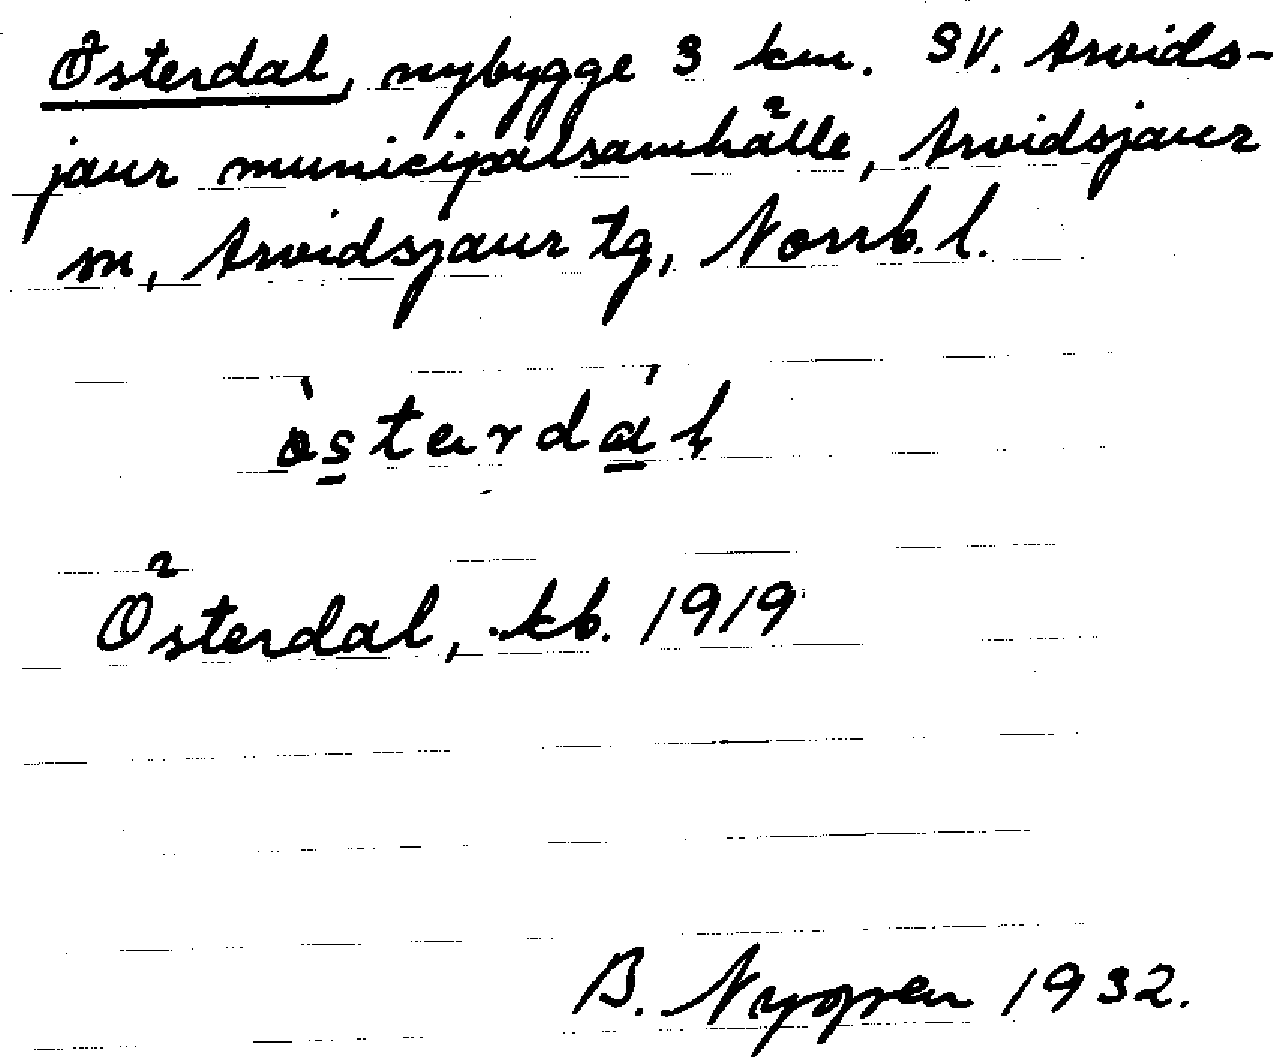 Österdal, nybygge 3 km. SV. Arvids-
jaur municipalsamhälle, Arvidsjaur
sn, Arvidsjaur tg, Norrb. l.
Österdal, kb. 1919
B. Nygren 1932.